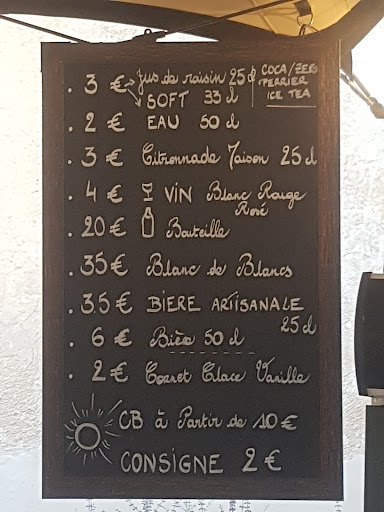 . 3 € Jus de raisin 25 cl
SOFT 33 cl
COCA/ZERO
PERRIER
ICE TEA
. 2 € EAU 50 cl
. 3 € Citronnade Maison 25 cl
. 4 € VIN Blanc Rouge
Rosé
. 20 € Bouteille
. 35 € Blanc de Blancs
. 3,5 € BIERE ARTISANALE
25 cl
. 6 € Bière 50 cl
. 2 € Cornet Glace Vanille
CB à Partir de 10 €
CONSIGNE 2 €